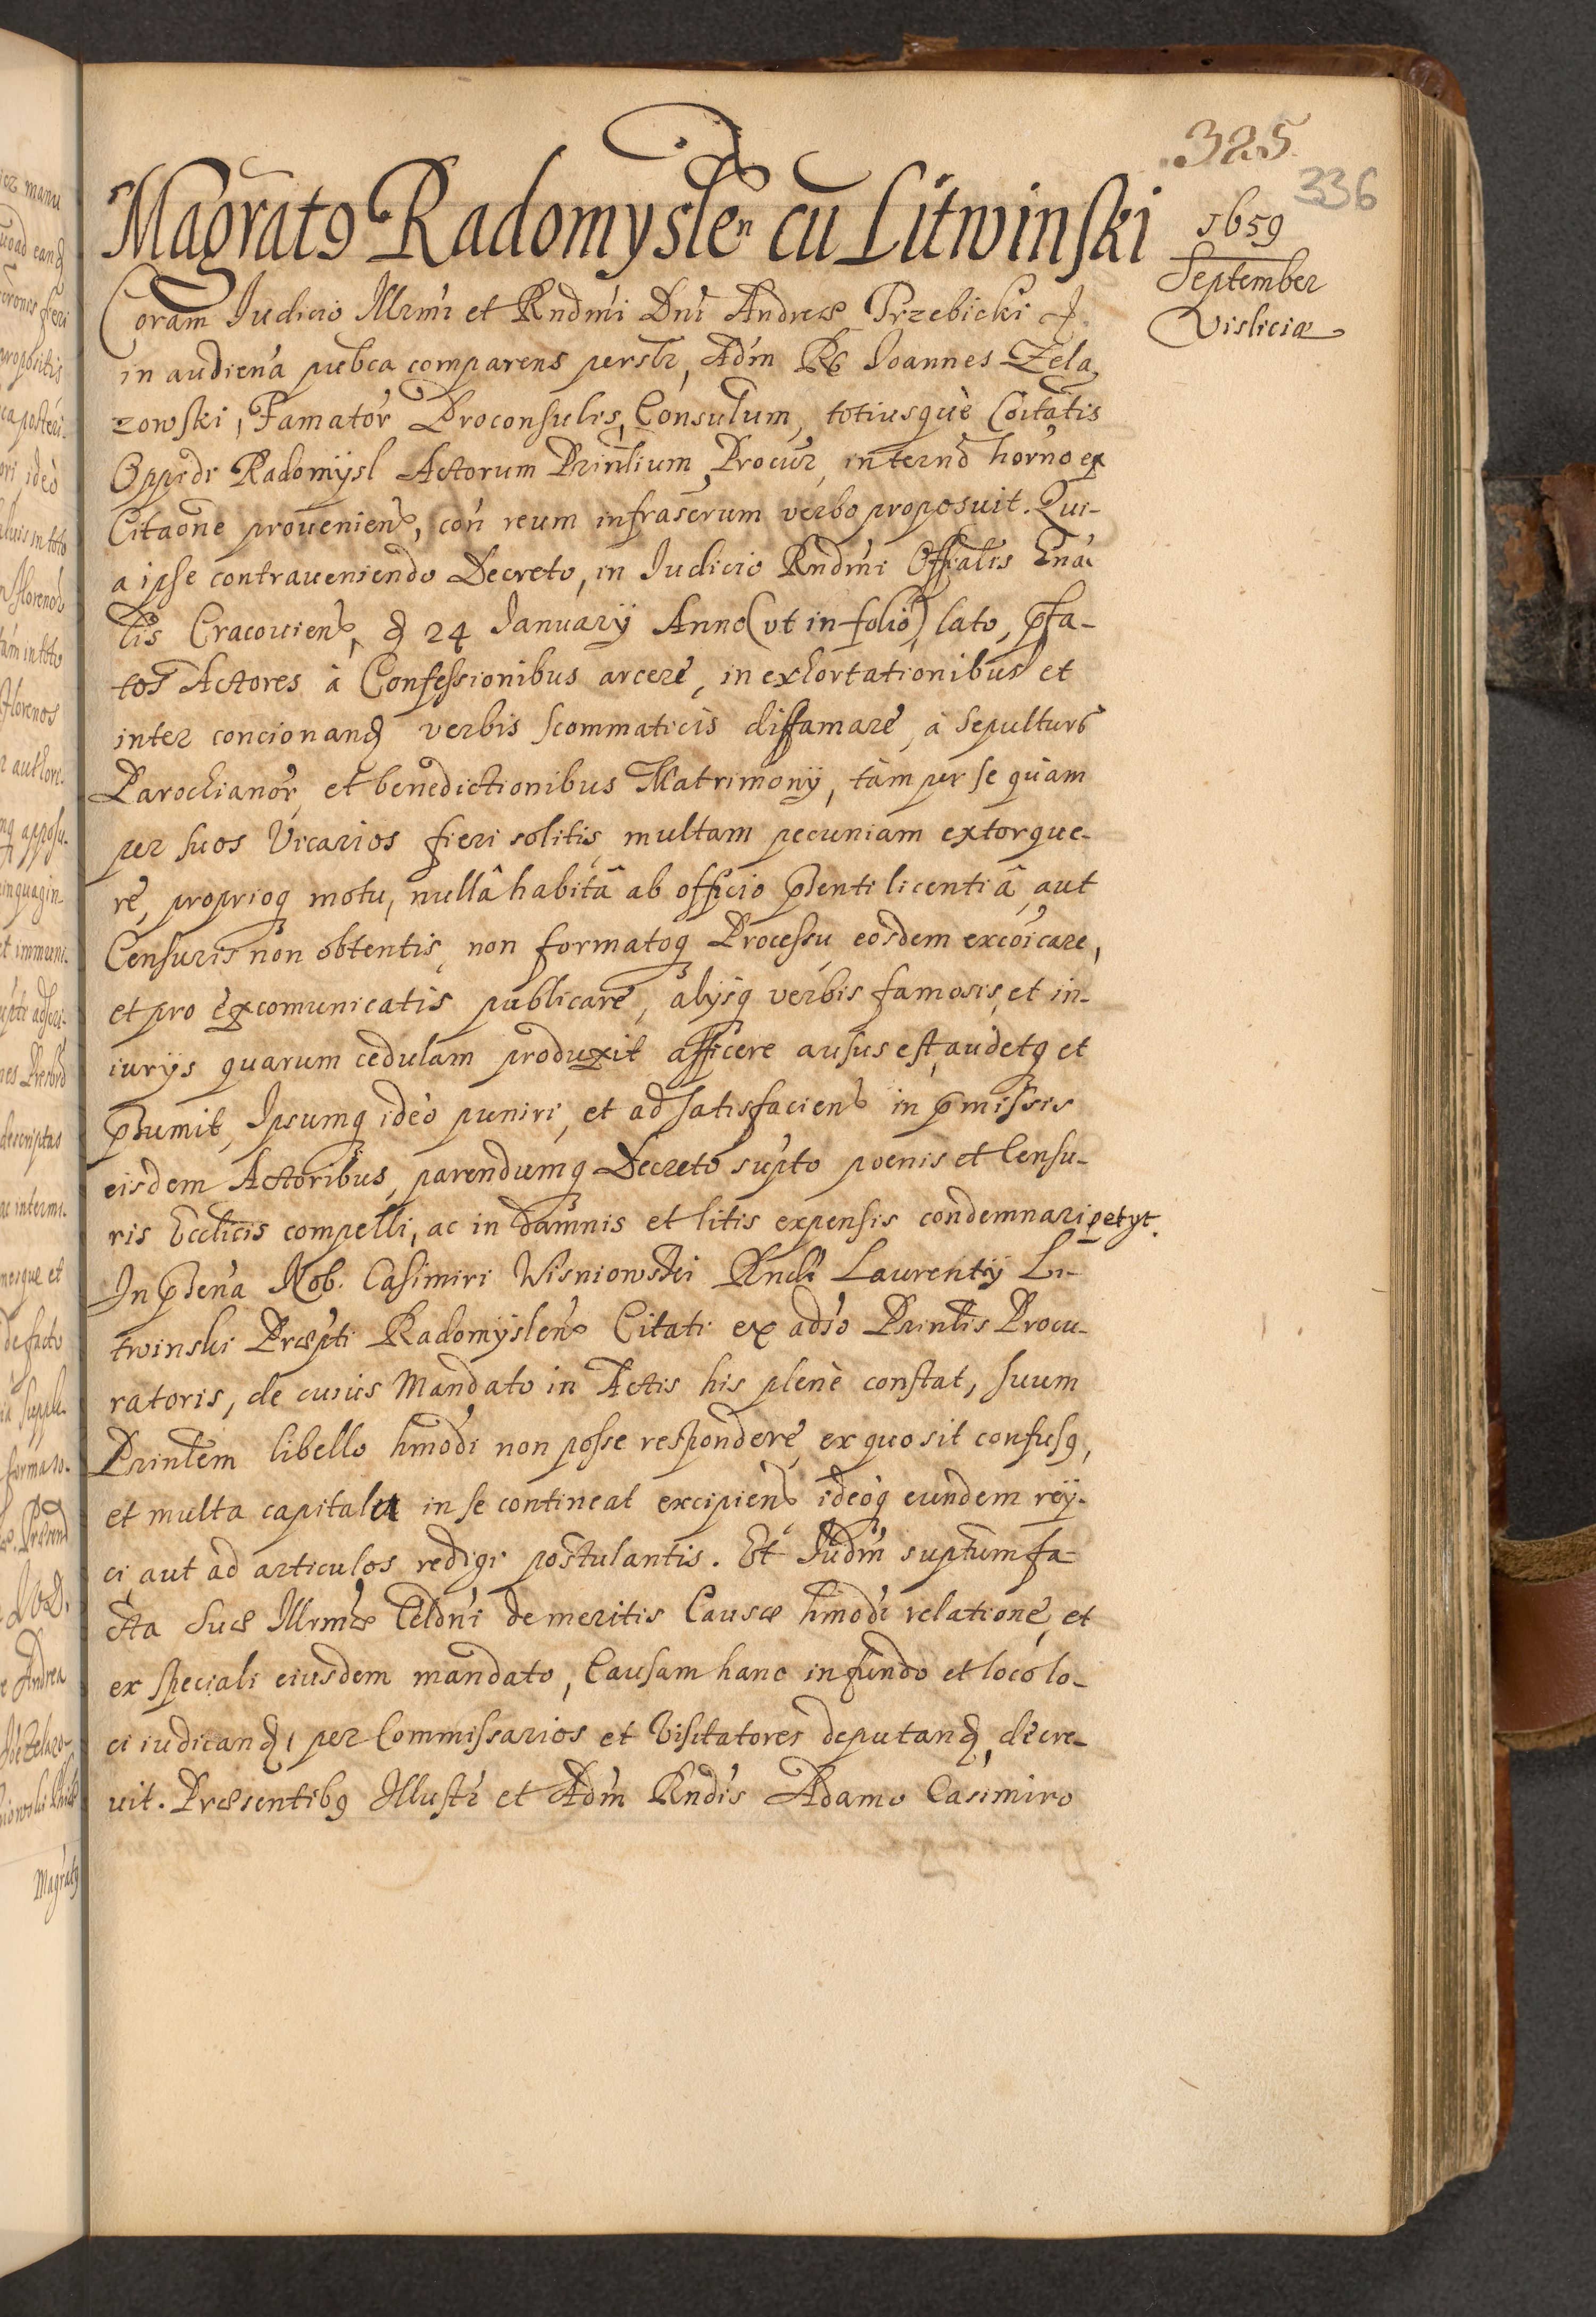 325
336
1659
September
Visliciæ
Magratꝯ Radomyslen cū Litwinski
Coram Iudicio Illrmi et Rndmi Dni Andreæ Trzebicki &.
in audiena pubca comparens perslr, Adm Rs Ioannes Zela
zowski, Famator Proconsulis, Consulum, totiusquè Coitatis
Oppidi Radomÿsl Actorum Prinlium Procur, in termo horno ex
Citaone provenien, con reum infrascrum verbo proposuit. Qui-
a ipse contraveniendo Decreto, in Iudicio Rndmi Offialis Gna
lis Cracovien, d 24 Ianuarÿ Anno (ut in folio) lato, pfa-
tos Actores à Confessionibus arcere, in exhortationibus et
inter concionand verbis scommaticis diffamare, à sepulturis
Parochianor, et benedictionibus Matrimonÿ, tàm per se quàm
per suos Vicarios fieri solitis multam pecuniam extorque-
re, proprioq motu, nullâ habitâ ab officio pnti licentiâ, aut
Censuris non obtentis, non formatoq Processu, eosdem excoicare,
et pro excomunicatis publicare, alÿsq verbis famosis, et in-
iurÿs quarum cedulam produxit afficere ausus est, audetq et
psumit, Ipsumq ideò puniri, et ad satisfacien in pmissis
eisdem Actoribus, parendumq Decreto supto poenis et Censu-
ris Ecclicis compelli, ac in damnis et litis expensis condemnari petyt.
In psena Nob. Casimiri Wisniowski Rndi Laurentÿ Li-
twinski Præpti Radomÿslen Citati ex adso Prinlis Procu-
ratoris, de cuius Mandato in Actis his plenè constat, suum
Prinlem libello hmodi non posse respondere, ex quo sit confusꝯ,
et multa capitala in se contineat excipien, ideoq eundem reÿ-
ci aut ad articulos redigi postulantis. Et Iudm suptum fa-
cta Suæ Illrmæ Celdni de meritis Causæ hmodi relatione, et
ex speciali eiusdem mandato, Causam hanc in fundo et loco lo-
ci iudicand, per Commissarios et Visitatores deputand, decre-
vit. Præsentibꝯ Illustr et Adm Rndis Adamo Casimiro